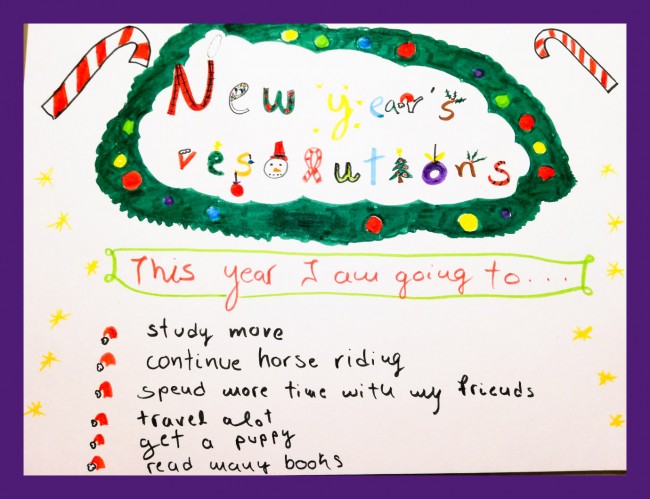 New year's
resolutions
This year I am going to....
study more
continue horse riding
spend more time with my friends
travel alot
get a puppy
read many books